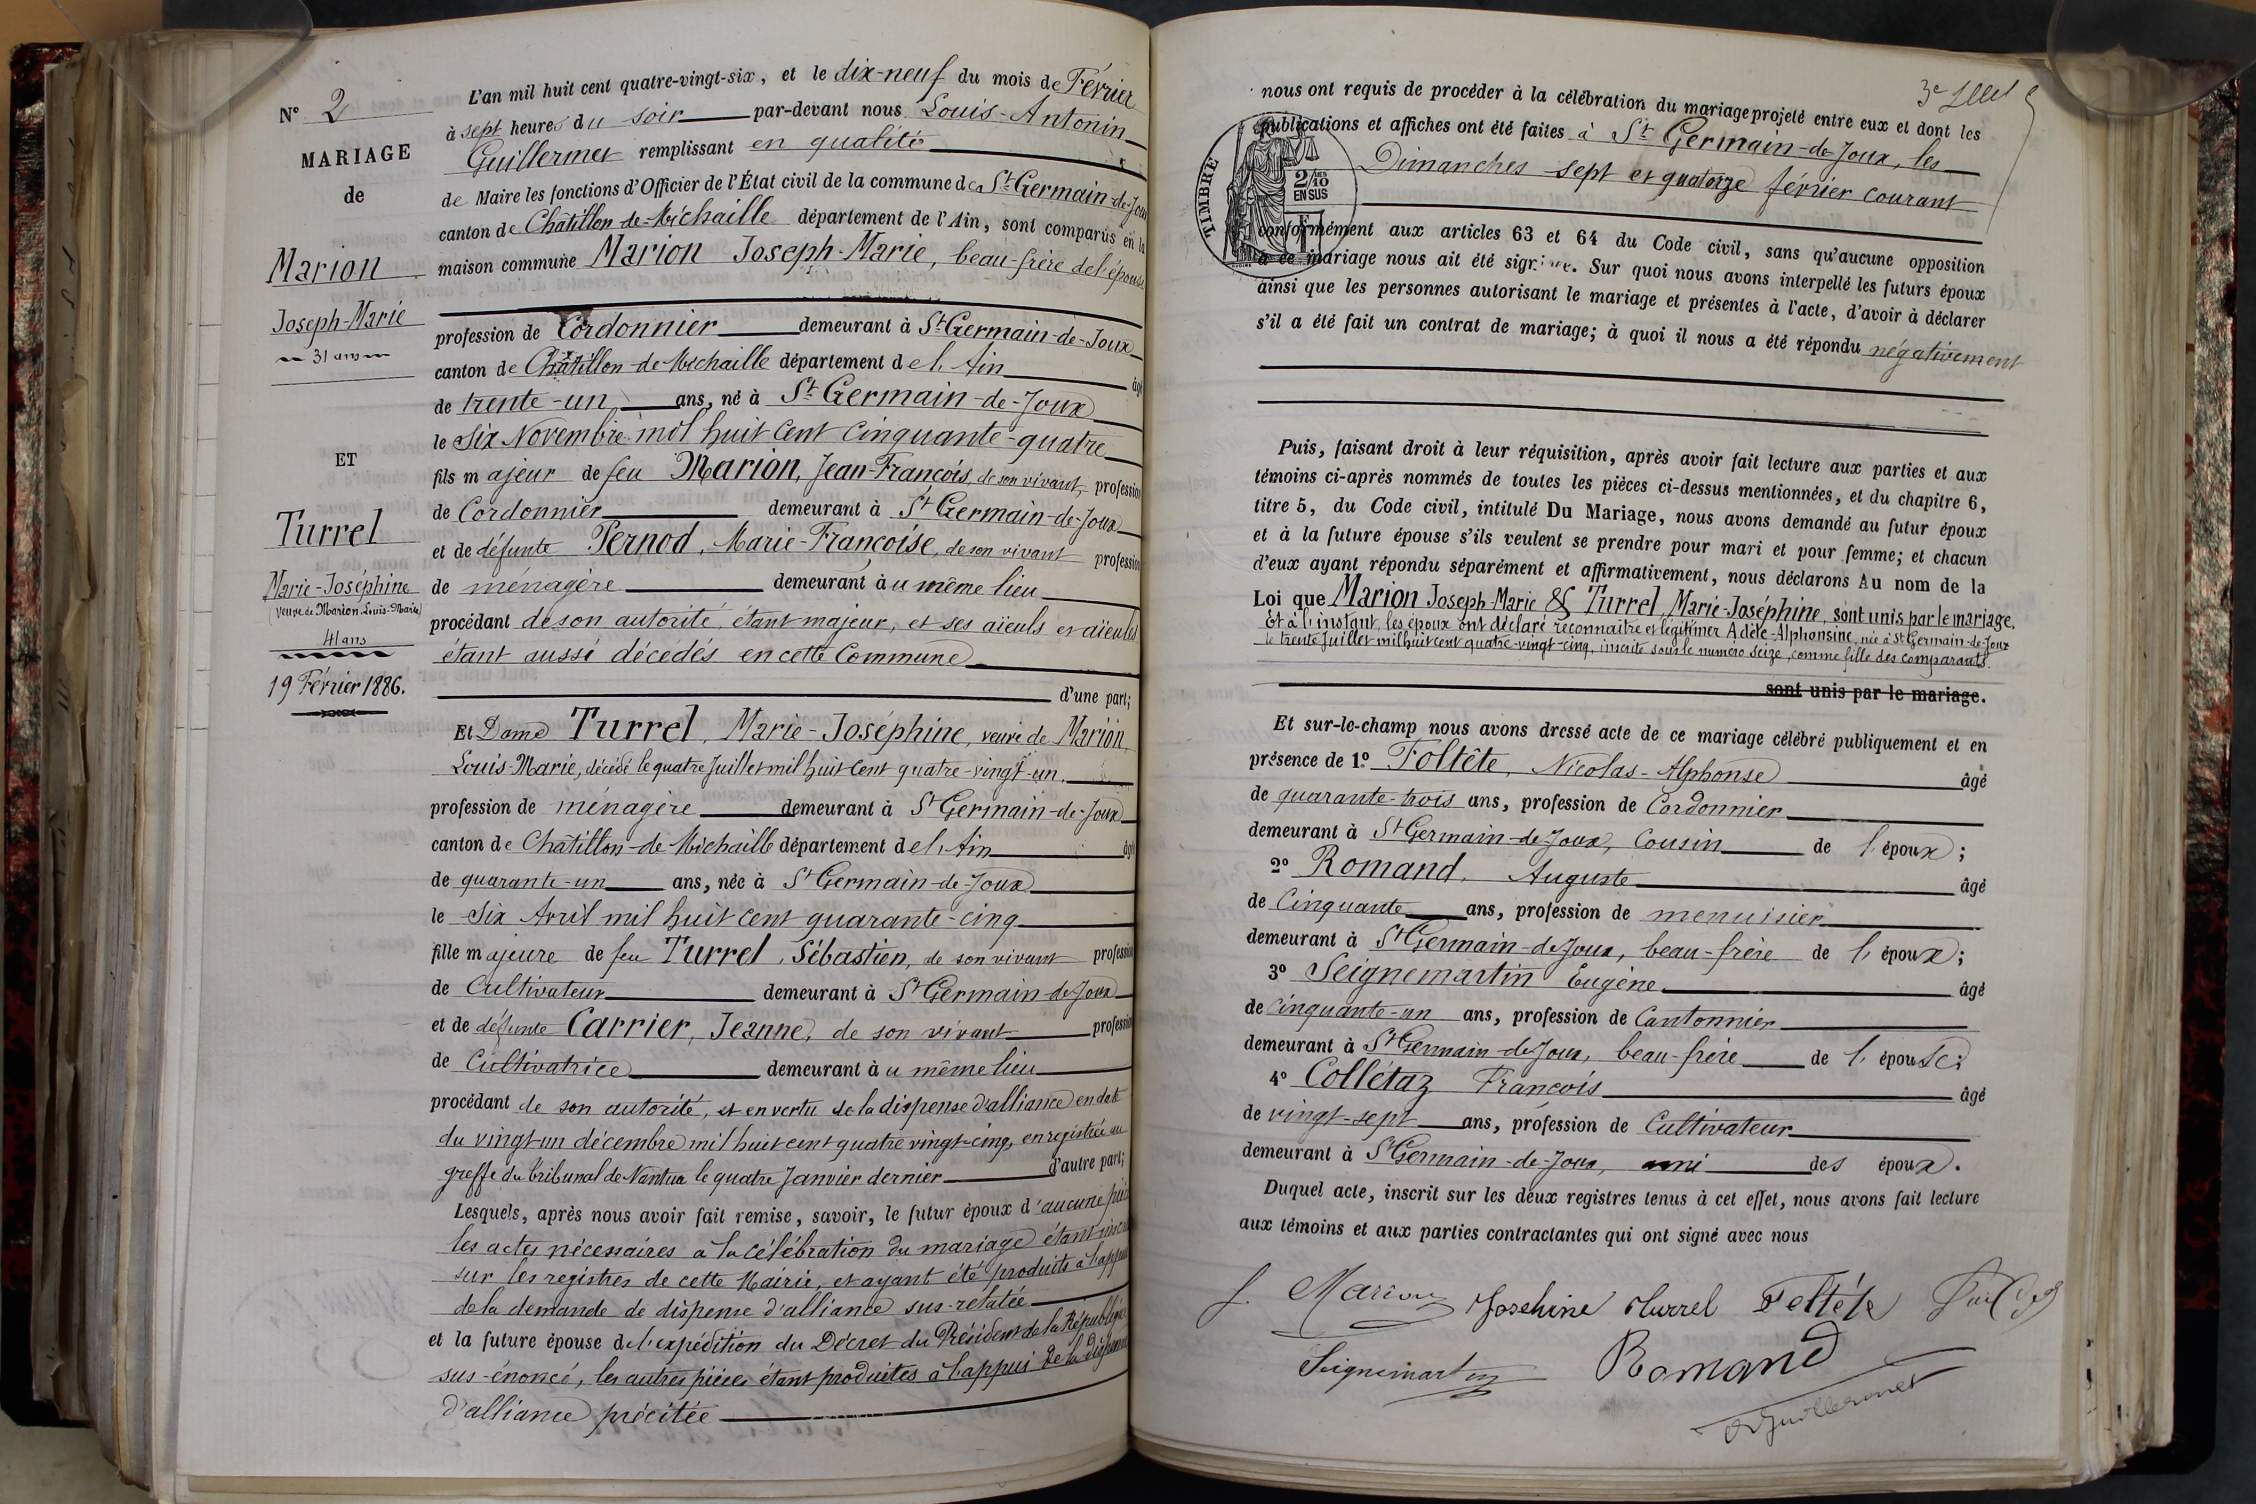 N° 2
MARIAGE
de
Marion
Joseph-Marie
31 ans
ET
Turrel
Marie-Joséphine
(veuve de Marion Louis-Marie)
41 ans
19 Février 1886.
L'an mil huit cent quatre-vingt-six, et le dix-neuf du mois de Février
à sept heures du soir par-devant nous Louis-Antonin
Guillermet remplissant en qualité
de Maire les fonctions d'Officier de l'État civil de la commune de St Germain-de-Joux
canton de Chatillon-de-Michaille département de l'Ain, sont comparus en la
maison commune Marion Joseph-Marie, beau-frère de l'épouse
profession de Cordonnier demeurant à St Germain-de-Joux
canton de Chatillon-de-Michaille département de l'Ain âgé
de trente-un ans, né à St Germain-de-Joux
le Six Novembre mil huit cent cinquante-quatre
fils majeur de feu Marion, Jean-François, de son vivant, profession
de Cordonnier demeurant à St Germain-de-Joux
et de défunte Pernod, Marie-Françoise, de son vivant profession
de ménagère demeurant au même lieu
procédant de son autorité, étant majeur, et ses aïeuls et aïeules
étant aussi décédés en cette Commune
d'une part;
Et Dame Turrel, Marie-Joséphine, veuve de Marion,
Louis-Marie, décédé le quatre Juillet mil huit cent quatre-vingt-un.
profession de ménagère demeurant à St Germain-de-Joux
canton de Chatillon-de-Michaille département de l'Ain âgé
de quarante-un ans, née à St Germain-de-Joux
le Six Avril mil huit cent quarante-cinq
fille majeure de feu Turrel, Sébastien, de son vivant profession
de Cultivateur demeurant à St Germain-de-Joux
et de défunte Carrier, Jeanne, de son vivant profession
de Cultivatrice demeurant au même lieu
procédant de son autorité, et en vertu de la dispense d'alliance en date
du vingt-un décembre mil huit cent quatre vingt-cinq, enregistrée au
greffe du tribunal de Nantua le quatre Janvier dernier d'autre part;
Lesquels, après nous avoir fait remise, savoir, le futur époux d'aucune pièce
les actes nécessaires à la célébration du mariage étant
sur les registres de cette Mairie, et ayant été produits à l'appui
de la demande de dispense d'alliance sus-relatée
et la future épouse de l'expédition du Décret du Président de la République
sus-énoncé, les autres pièces étant produites à l'appui de la dispense
d'alliance précitée
nous ont requis de procéder à la célébration du mariage projeté entre eux et dont les
publications et affiches ont été faites à St Germain-de-Joux, les
Dimanches sept et quatorze février courant
TIMBRE
2/10 EN SUS
conformément aux articles 63 et 64 du Code civil, sans qu'aucune opposition
à ce mariage nous ait été signifiée. Sur quoi nous avons interpellé les futurs époux
ainsi que les personnes autorisant le mariage et présentes à l'acte, d'avoir à déclarer
s'il a été fait un contrat de mariage; à quoi il nous a été répondu négativement
Puis, faisant droit à leur réquisition, après avoir fait lecture aux parties et aux
témoins ci-après nommés de toutes les pièces ci-dessus mentionnées, et du chapitre 6,
titre 5, du Code civil, intitulé Du Mariage, nous avons demandé au futur époux
et à la future épouse s'ils veulent se prendre pour mari et pour femme; et chacun
d'eux ayant répondu séparément et affirmativement, nous déclarons Au nom de la
Loi que Marion Joseph Marie & Turrel, Marie-Joséphine, sont unis par le mariage.
Et à l'instant, les époux ont déclaré reconnaitre et légitimer Adèle-Alphonsine, née à St Germain-de-Joux
le trente Juillet mil huit cent quatre-vingt-cinq, inscrite sous le numéro seize, comme fille des comparants.
sont unis par le mariage.
Et sur-le-champ nous avons dressé acte de ce mariage célébré publiquement et en
présence de 1° Foltête, Nicolas-Alphonse âgé
de quarante-trois ans, profession de Cordonnier
demeurant à St Germain-de-Joux, Cousin de l'époux;
2° Romand, Auguste âgé
de Cinquante ans, profession de menuisier
demeurant à St Germain-de-Joux, beau-frère de l'époux;
3° Seignemartin Eugène âgé
de cinquante-un ans, profession de Cantonnier
demeurant à St Germain-de-Joux, beau-frère de l'épouse;
4° Collétaz François âgé
de vingt-sept ans, profession de Cultivateur
demeurant à St Germain-de-Joux, ami des époux.
Duquel acte, inscrit sur les deux registres tenus à cet effet, nous avons fait lecture
aux témoins et aux parties contractantes qui ont signé avec nous
J. Marion Joséhine Turrel Foltête
Seignemartin Romand
Guillermet